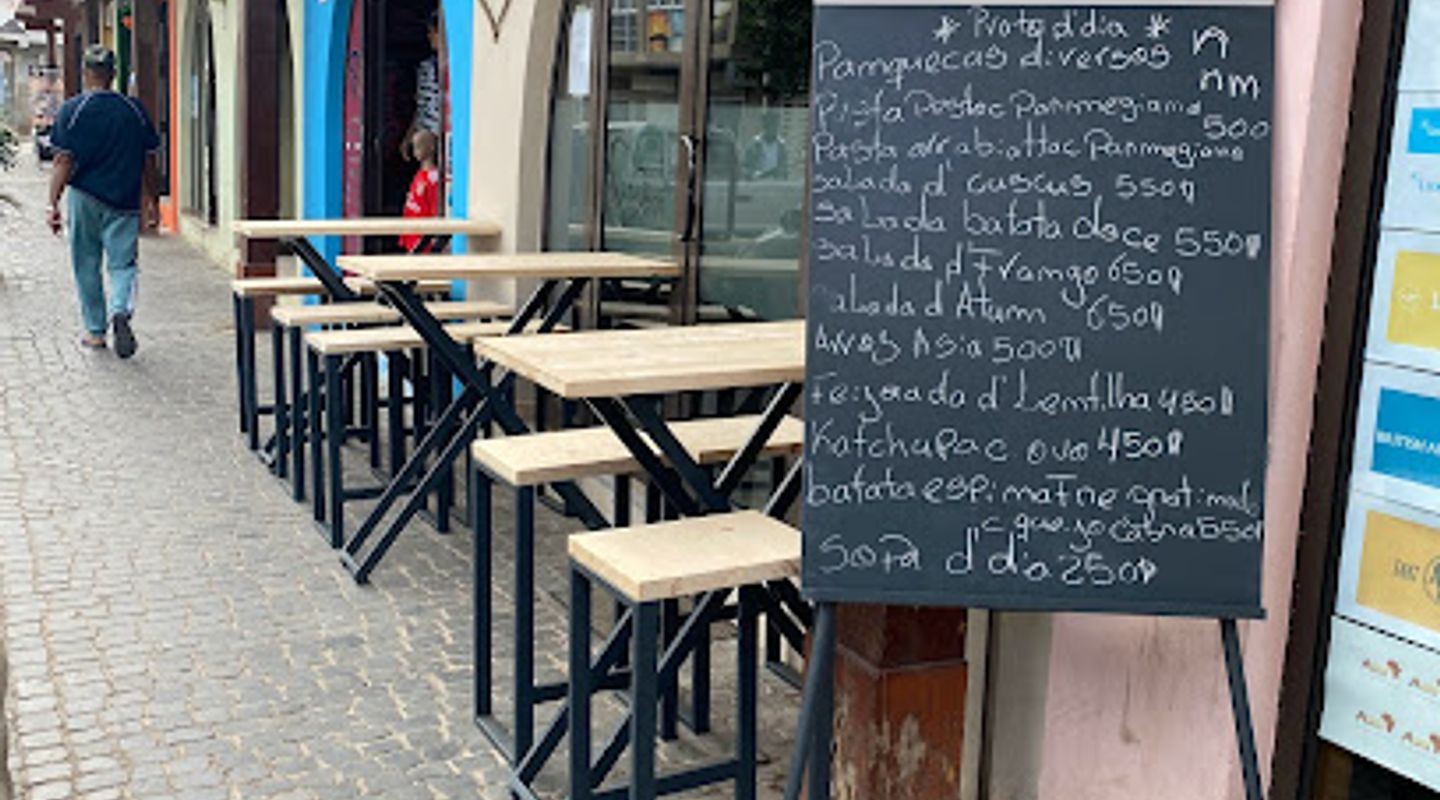 * Prato d'dia *
Panquecas diversas
Pasta Pestoc Parmmegiana 500
Pasta arrabiattac Parmegiano
salada d' cuscus 550$
Salada batata doce 550$
Salada d' Frango 650$
Salada d' Atum 650$
Arroz Asia 500$
Feijoada d' Lentilha 450$
Katchupac ovo 450$
batata espimafre gratimado
c queyo cabra 550$
Sopa d'dia 250$